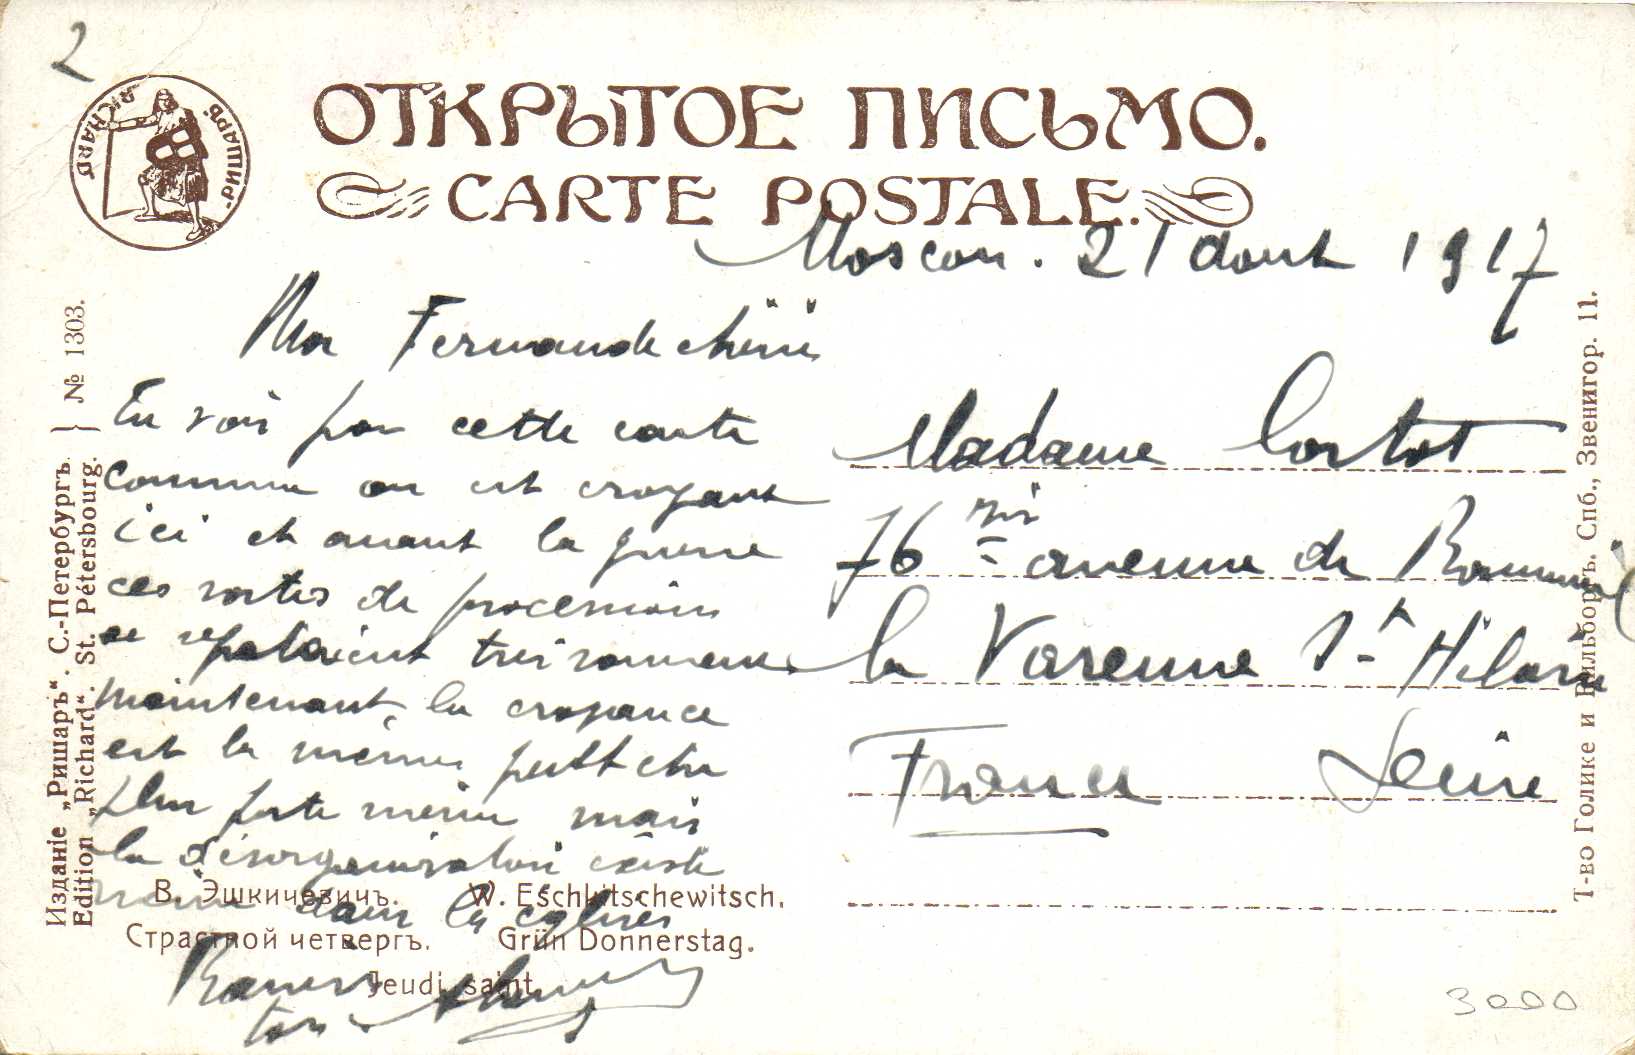 2
РИШАРЪ
RICHARD
ОТКРЫТОЕ ПИСЬМО.
CARTE POSTALE.
Moscou. 21 aout 1917
Ma Fernande chérie
Tu vois par cette carte
comme on est croyant
ici et avant la guerre
ces sortes de processions
se repetaient
maintenant, la croyance
est la même peut etre
plus forte même mais
la désorganisation existe
même dans les eglises
Baisers
ton
Madame Cortot
76 bis avenue de
la Varenne St Hilaire
France Seine
№ 1303.
Изданіе „Ришаръ“. С.-Петербургъ
Edition „Richard“. St. Pétersbourg.
В. Эшкичевичъ. W. Eschkitschewitsch.
Страстной четвергъ. Grün Donnerstag.
Jeudi saint.
Т-во Голике и Вильборгъ. Спб., Звенигор. 11.
3000